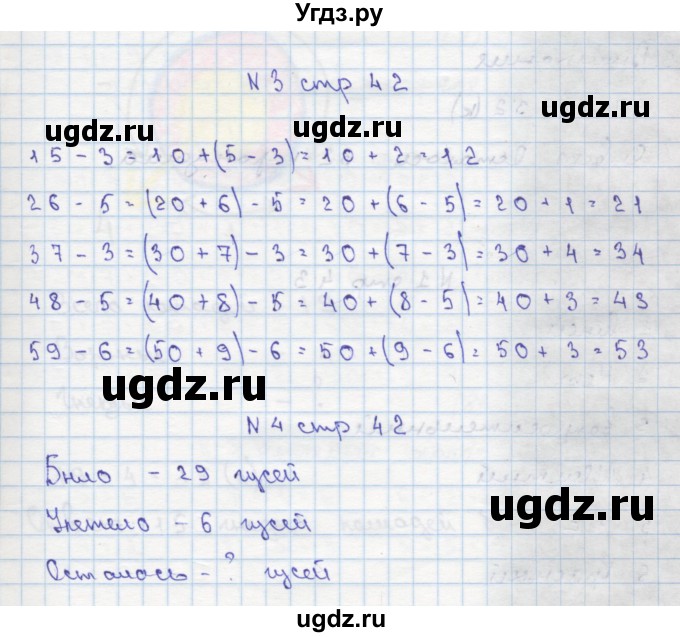 Угдз.ру
N 3 стр 42
ugdz.ru ugdz.ru
15 - 3 = 10 + (5 - 3) = 10 + 2 = 12
26 - 5 = (20 + 6) - 5 = 20 + (6 - 5) = 20 + 1 = 21
37 - 3 = (30 + 7) - 3 = 30 + (7 - 3) = 30 + 4 = 34
48 - 5 = (40 + 8) - 5 = 40 + (8 - 5) = 40 + 3 = 43
59 - 6 = (50 + 9) - 6 = 50 + (9 - 6) = 50 + 3 = 53
ugdz.ru
N 4 стр 42
Было - 29 гусей
ugdz.ru
Улетело - 6 гусей
Осталось - ? гусей
ugdz.ru